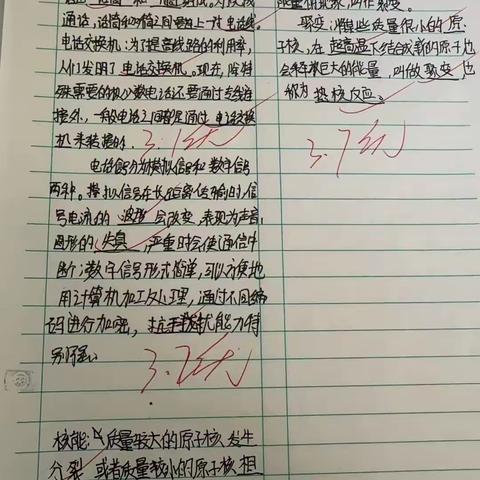 通话,话筒和听筒之间要加上一对电话线。
电话交换机:为了提高线路的利用率,
人们发明了电话交换机。现在,除特
殊需要的极少数电话还要通过专线连
接外,一般电话之间都是通过电话交换
机来转接的。
3.1幺
电话信号分为模拟信号和数字信号
两种。模拟信号在长距离传输时,信
号电流的波形会改变,表现为声音、
图形的失真,严重时会使通信中
断;数字信号形式简单,可以方便地
用计算机加工处理,通过不同编
码进行加密,抗干扰能力特
别强。
3.2幺
核能:质量较大的原子核发生
分裂或者质量较小的原子核相
聚变:将某些质量很小的原
子核,在超高温下结合成新的原子核也
会释放巨大的能量,叫做聚变,也
称为热核反应。
3.7幺